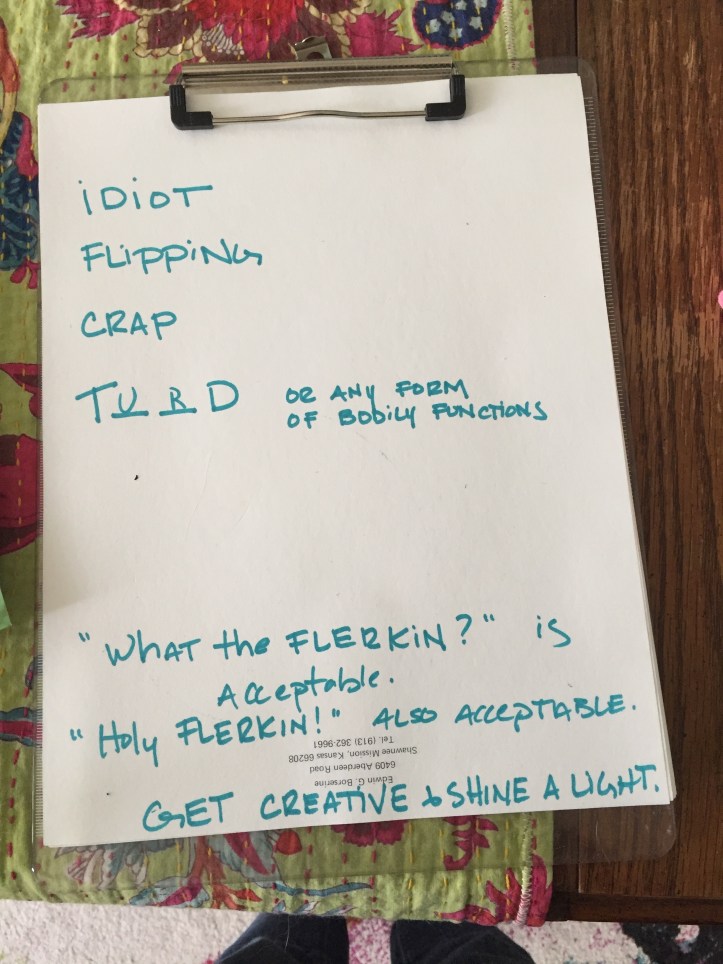 iDiOT
FLiPPiNG
CRAP
TURD OR ANY FORM
OF BODiLY FUNCTIONS
"WHAT the FLERKiN?" iS
Acceptable.
"Holy FLERKiN!" ALSO ACCEPTABLE.
Tel. (913) 362-9661
Shawnee Mission, Kansas 66208
6409 Aberdeen Road
Edwin G. Borserine
GET CREATiVE & SHiNE A LiGHT.